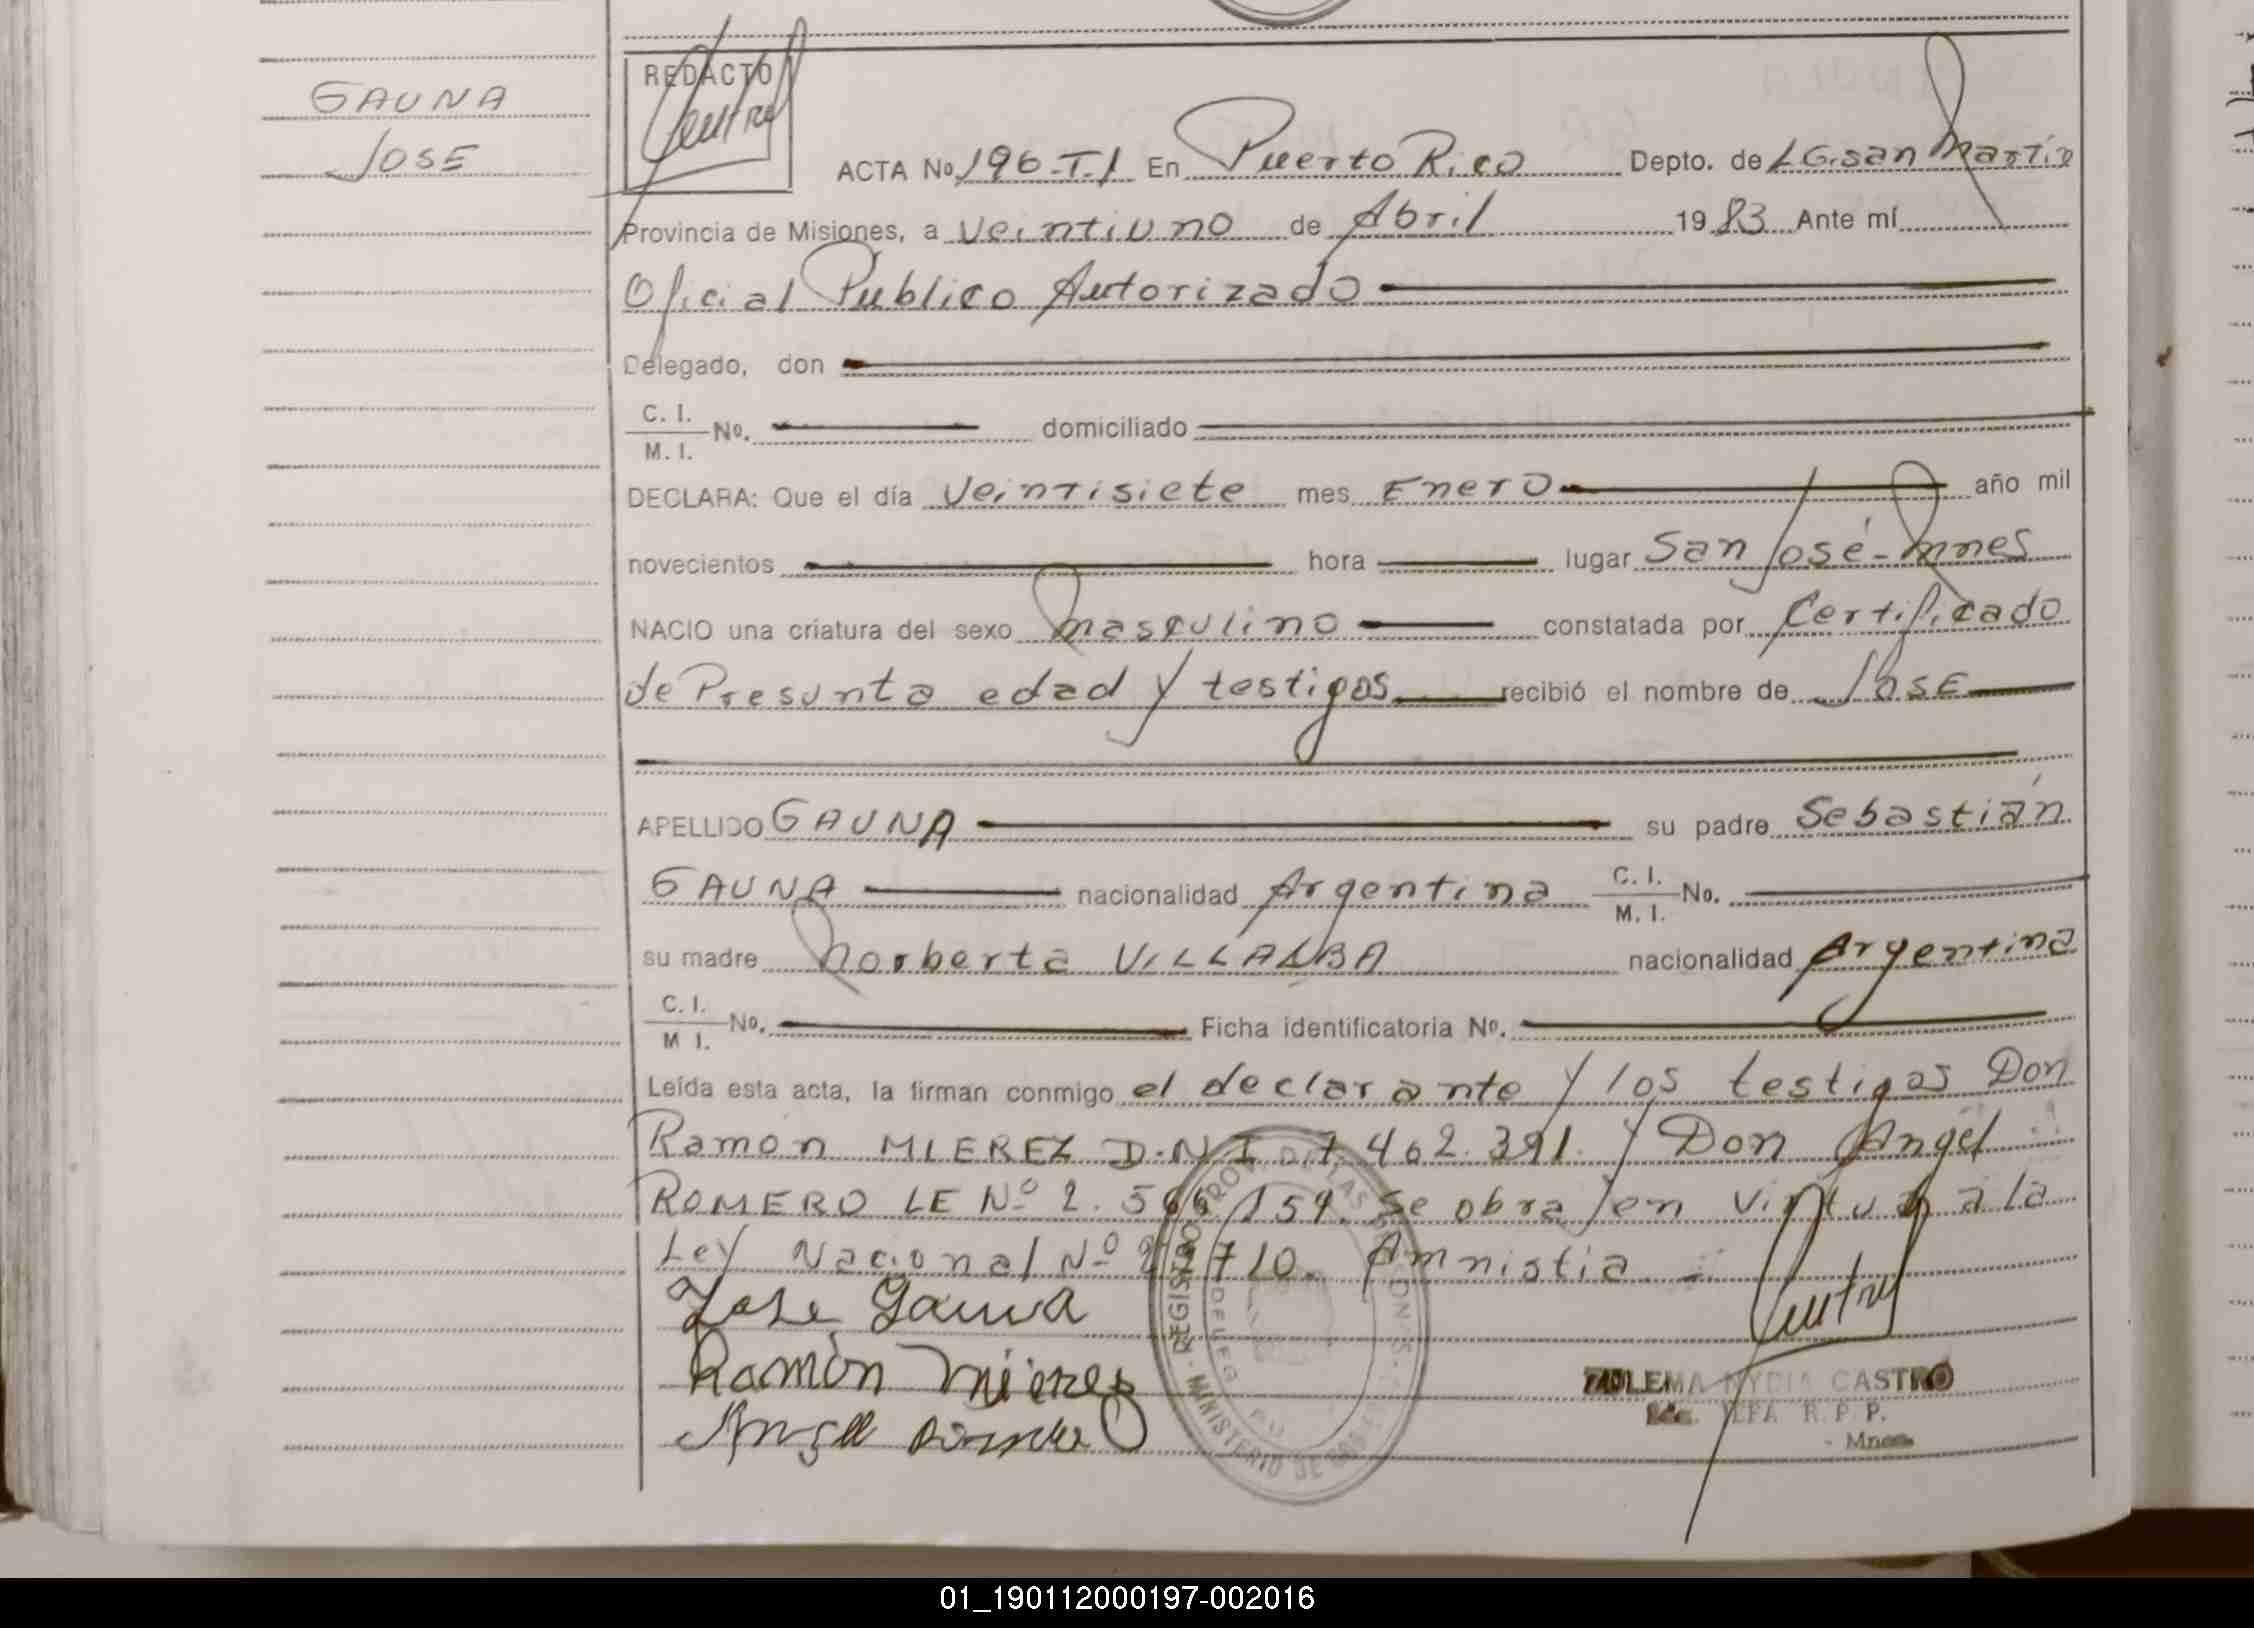 GAUNA
JOSE
REDACTO
ACTA No. 196-T.I En Puerto Rico Depto. de L G. San Martín
Provincia de Misiones, a veintiuno de Abril 1983 Ante mí
Oficial Publico Autorizado
Delegado, don
C. I.
M. I. No. domiciliado
DECLARA: Que el día veintisiete mes Enero año mil
novecientos hora lugar San José - Mnes
NACIO una criatura del sexo masculino constatada por Certificado
de Presunta edad y testigos recibió el nombre de JOSE
APELLIDO GAUNA su padre Sebastián
GAUNA nacionalidad Argentina C. I. M. I. No.
su madre Norberta VILLALBA nacionalidad Argentina
C. I.
M I. No. Ficha identificatoria No.
Leída esta acta, la firman conmigo el declarante y los testigos Don
Ramón MIEREZ D.N.I 7.462.391. y Don Angel
ROMERO LE Nº 2.566.159. se obra en virtud a la
Ley Nacional Nº 710. Amnistia
Jose Gauna
Ramón Mierez
REGISTRO PROV. DE LAS PERSONAS - MINISTERIO DE
NYDIA CASTRO
R. P. P.
- Mnes
01_190112000197-002016